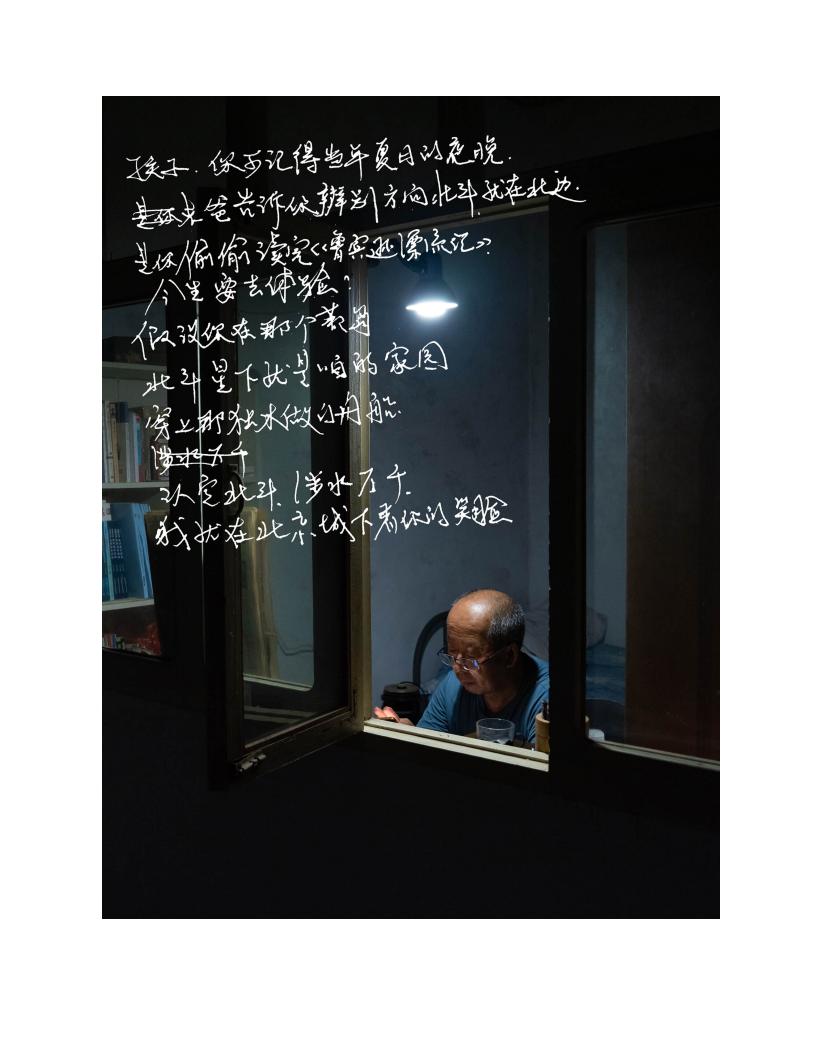 孩子.你可记得当年夏日的夜晚.
是你来爸告诉你辨别方向,北斗就在北边.
是你偷偷读完《鲁宾逊漂流记》?
今生要去体验?
假设你在那个荒岛
北斗星下就是咱的家园
穿上那独木做小舟船.
涉水万千
认定北斗.涉水万千.
我就在北京城下看你的笑脸